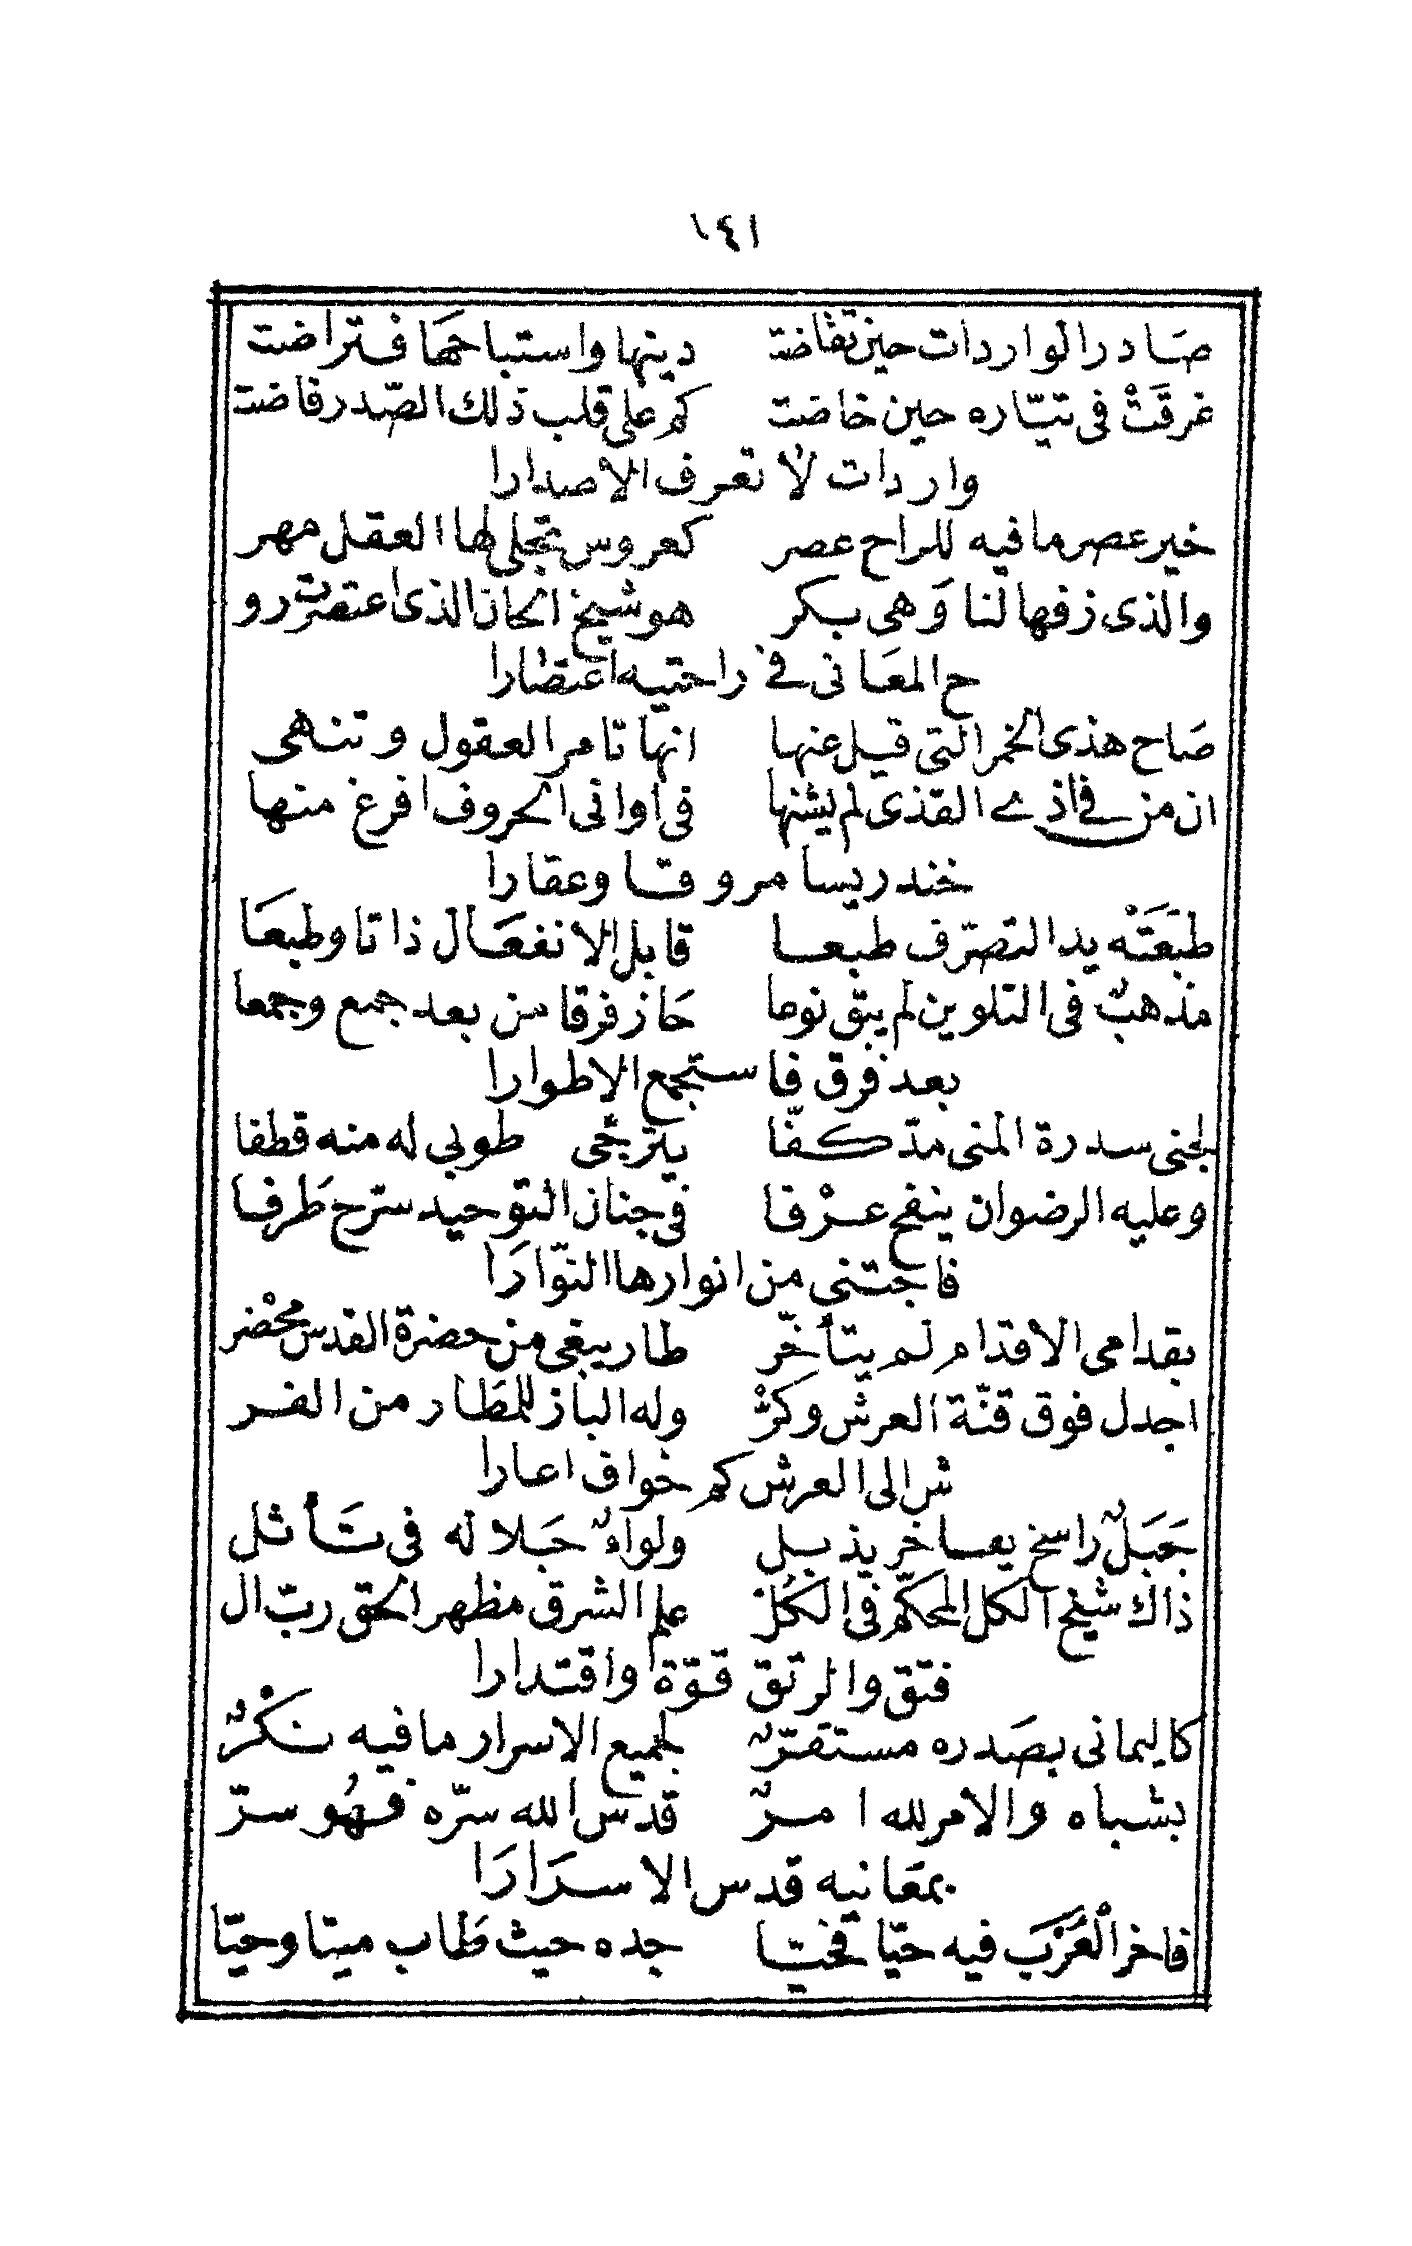 ١٤١
صَادر الواردات حين تقاضت دينها واستباحها فتراضت
غرقَتْ في تيّاره حين خاضت كم على قلب ذلك الصّدر فاضت
واردات لا تعرف الاصدارا
خير عصر ما فيه للراح عصر كعروس تجلى لها العقل مهر
والذى زفها لنا وَهى بكر هو شيخ الحان الذى اعتصرت رو
ح المعَانى فى راحتيه اعتصارا
صَاح هذى الخمر التى قيل عنها انها تامر العقول وتنهى
ان من فى اذى القذى لم يشنها فى اوانى الحروف افرغ منها
خندريسا مروقا وعقارا
طبَعَتْه يد التصرّف طبعا قابل الانفعَال ذاتا وطبعَا
مذهبٌ فى التلوين لم يبق نوعا حَاز فرقا من بعد جمع وجمعا
بعد فرق فاستجمع الاطوارا
لجنى سدرة المنى مدّ كفّا يترجّى طوبى له منه قطفا
وعليه الرضوان ينفح عرْفا فى جنان التوحيد سرّح طَرفا
فاجتنى من انوارها النوّارَا
بقدامى الاقدام لم يتأخّر طار يبغى من حضرة القدس محْضر
اجدل فوق قنّة العرش وكرْ وله الباز للمَطَار من الفر
ش الى العرش كم خواف اعارا
جَبَلٌ راسخ يعاخر يذبل ولواءٌ جَلاله فى تَأثل
ذاك شيخ الكل المحكّم فى الكُلْ علم الشرق مظهر الحق ربّ ال
فتق والرتق قوّة واقتدارا
كاليمانى بصَدره مستقرّ لجميع الاسرار ما فيه نكْرٌ
بشباه والامر لله امرّ قدس الله سرّه فهُو سرّ
بمعَانيه قدس الاسرَارَا
فاخر العَرْبَ فيه حيّا فحيّا جده حيث طَاب ميتا وحيّا